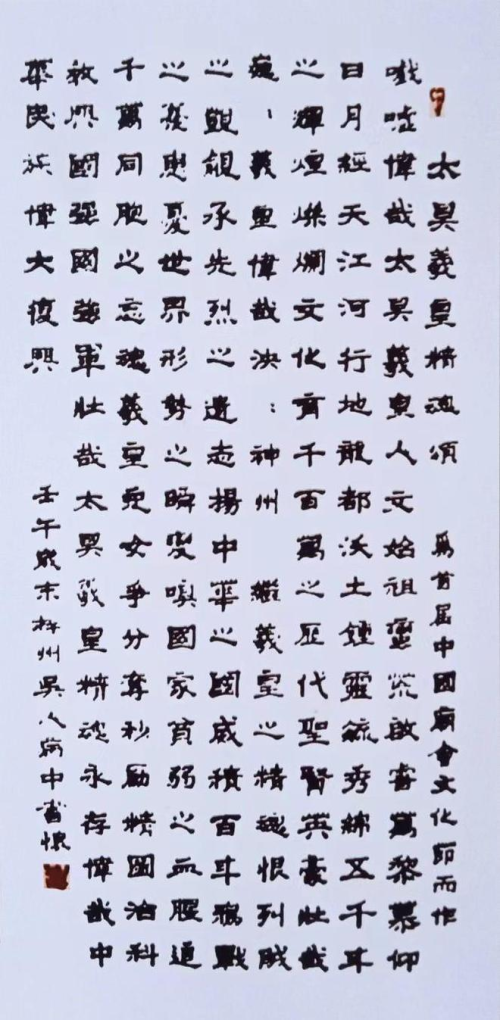 太昊羲皇精魂頌 為首屆中國廟會文化節而作
嘘偉哉太昊羲皇人文始祖蠻荒啟睿萬黎慕仰
日月經天江河行地龍都沃土鍾靈毓秀綿五千年
之輝煌燦爛文化育千百萬之歷代聖賢英豪壯哉
巍、羲皇偉哉泱：神州 繼羲皇之精魂恨列賊
之覬覦承先烈之遺志揚中華之國威積百年鴉戰
之憂世界形勢之瞬變國家貧弱之血腥道
千萬同胞之忘魂羲皇兒女爭分奪秒勵精圖治科
教興國強國強軍 壯哉太昊羲皇精魂永存偉哉中
華民族偉大復興
壬午歲末州吳人病中書懷